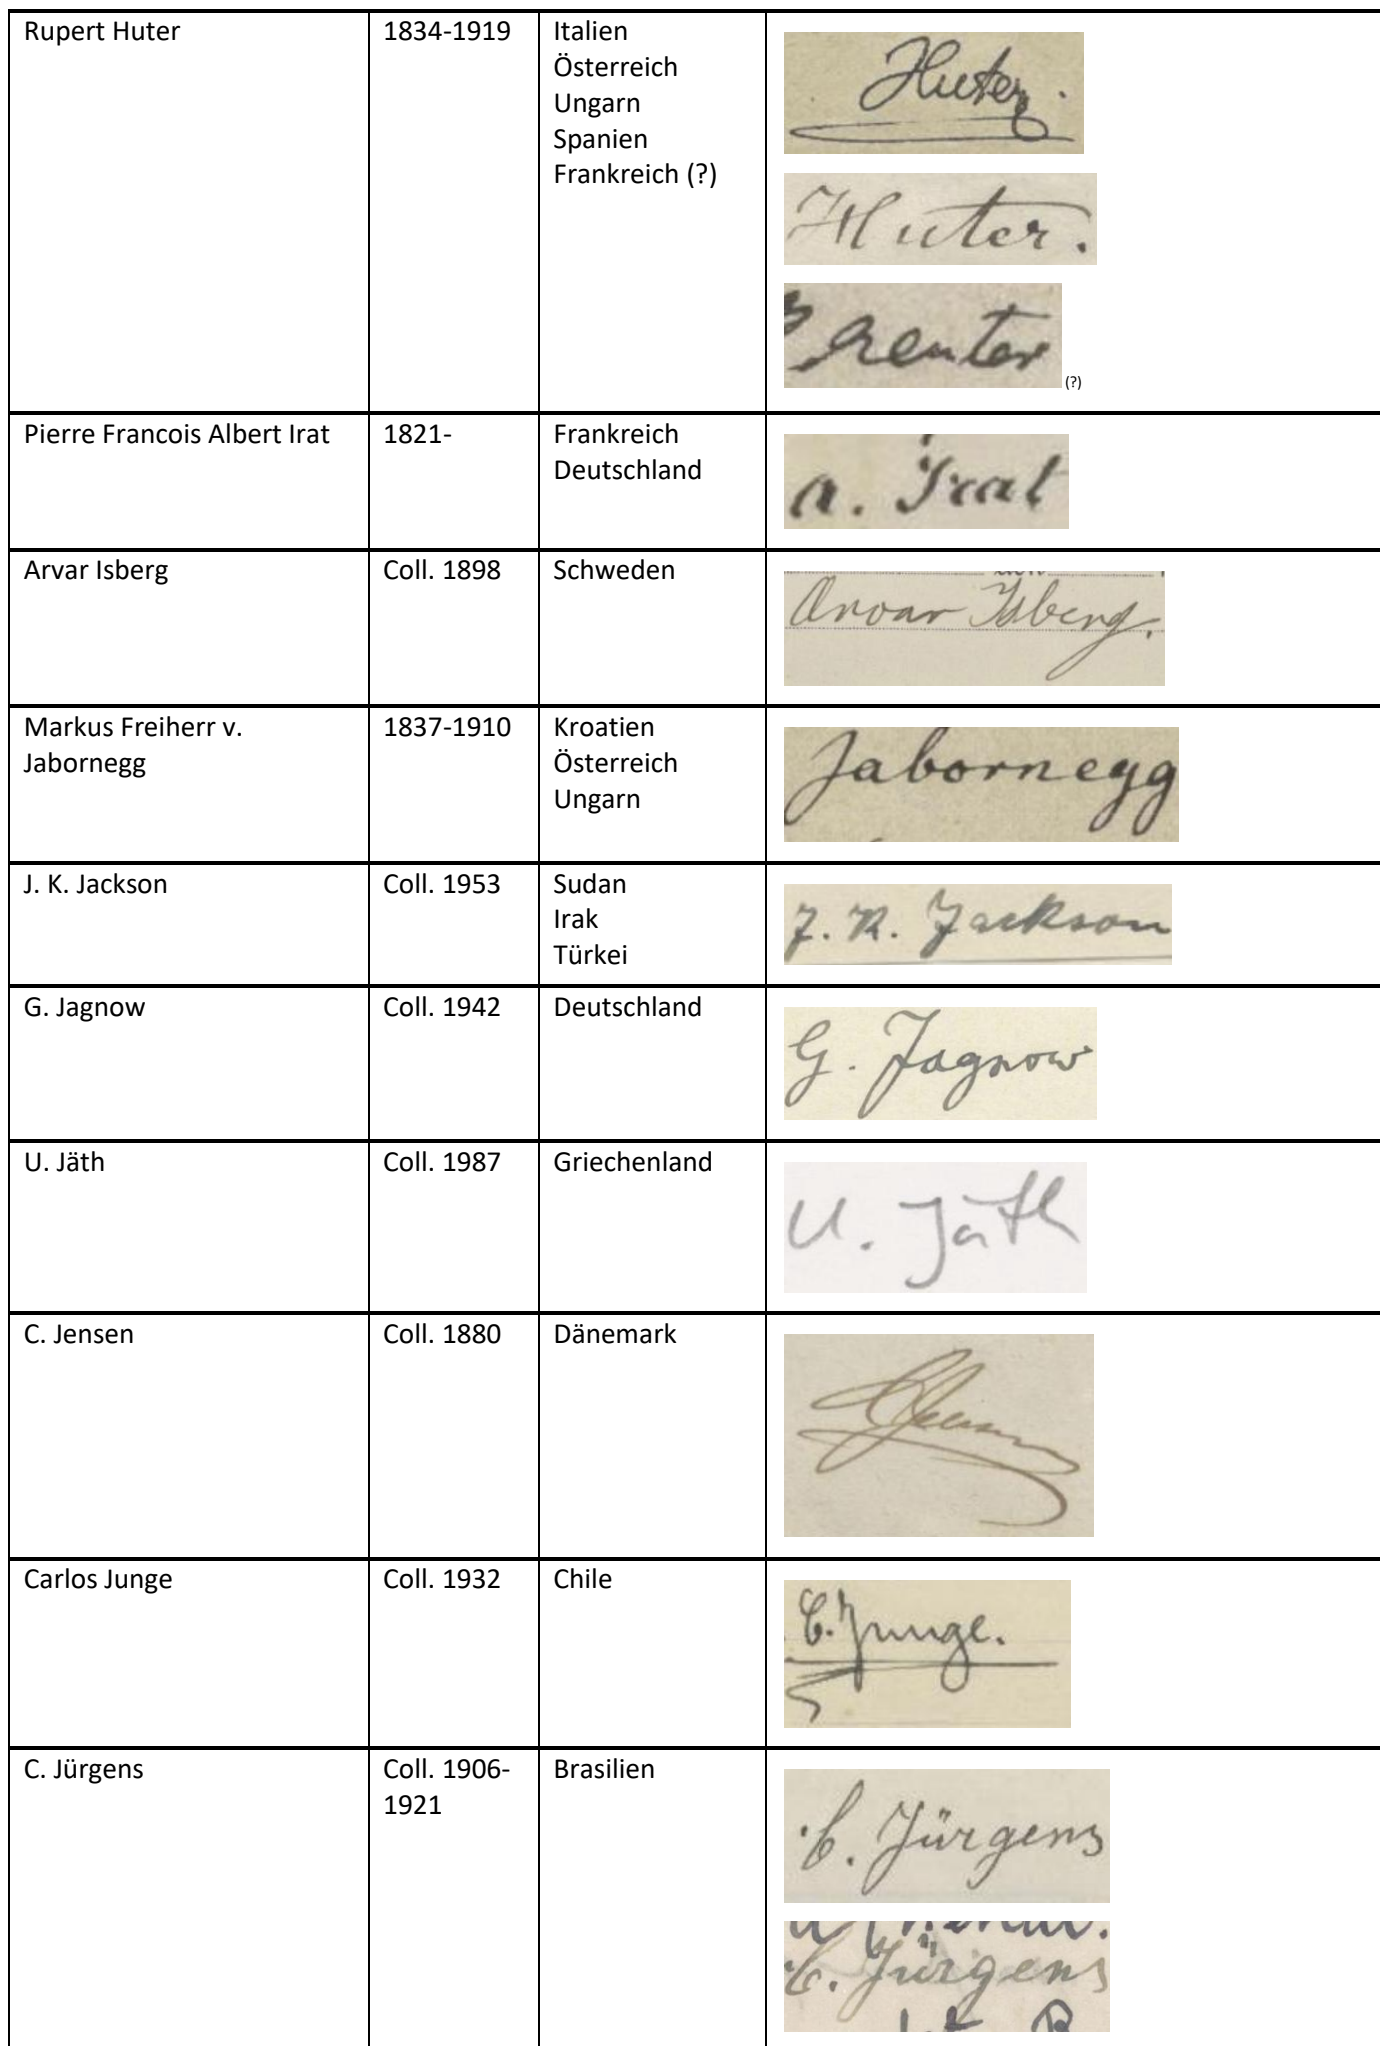 Rupert Huter 1834-1919 Italien
Österreich
Ungarn
Spanien
Frankreich (?)
Huter.
Huter.
(?)
Pierre Francois Albert Irat 1821- Frankreich
Deutschland
A. Irat
Arvar Isberg Coll. 1898 Schweden
Arvar Isberg.
Markus Freiherr v. 1837-1910 Kroatien
Jabornegg Österreich
Ungarn
Jabornegg
J. K. Jackson Coll. 1953 Sudan
Irak
Türkei
J. K. Jackson
G. Jagnow Coll. 1942 Deutschland
G. Jagnow
U. Jäth Coll. 1987 Griechenland
U. Jäth
C. Jensen Coll. 1880 Dänemark
Carlos Junge Coll. 1932 Chile
C. Junge.
C. Jürgens Coll. 1906- Brasilien
1921
C. Jürgens
C. Jürgens